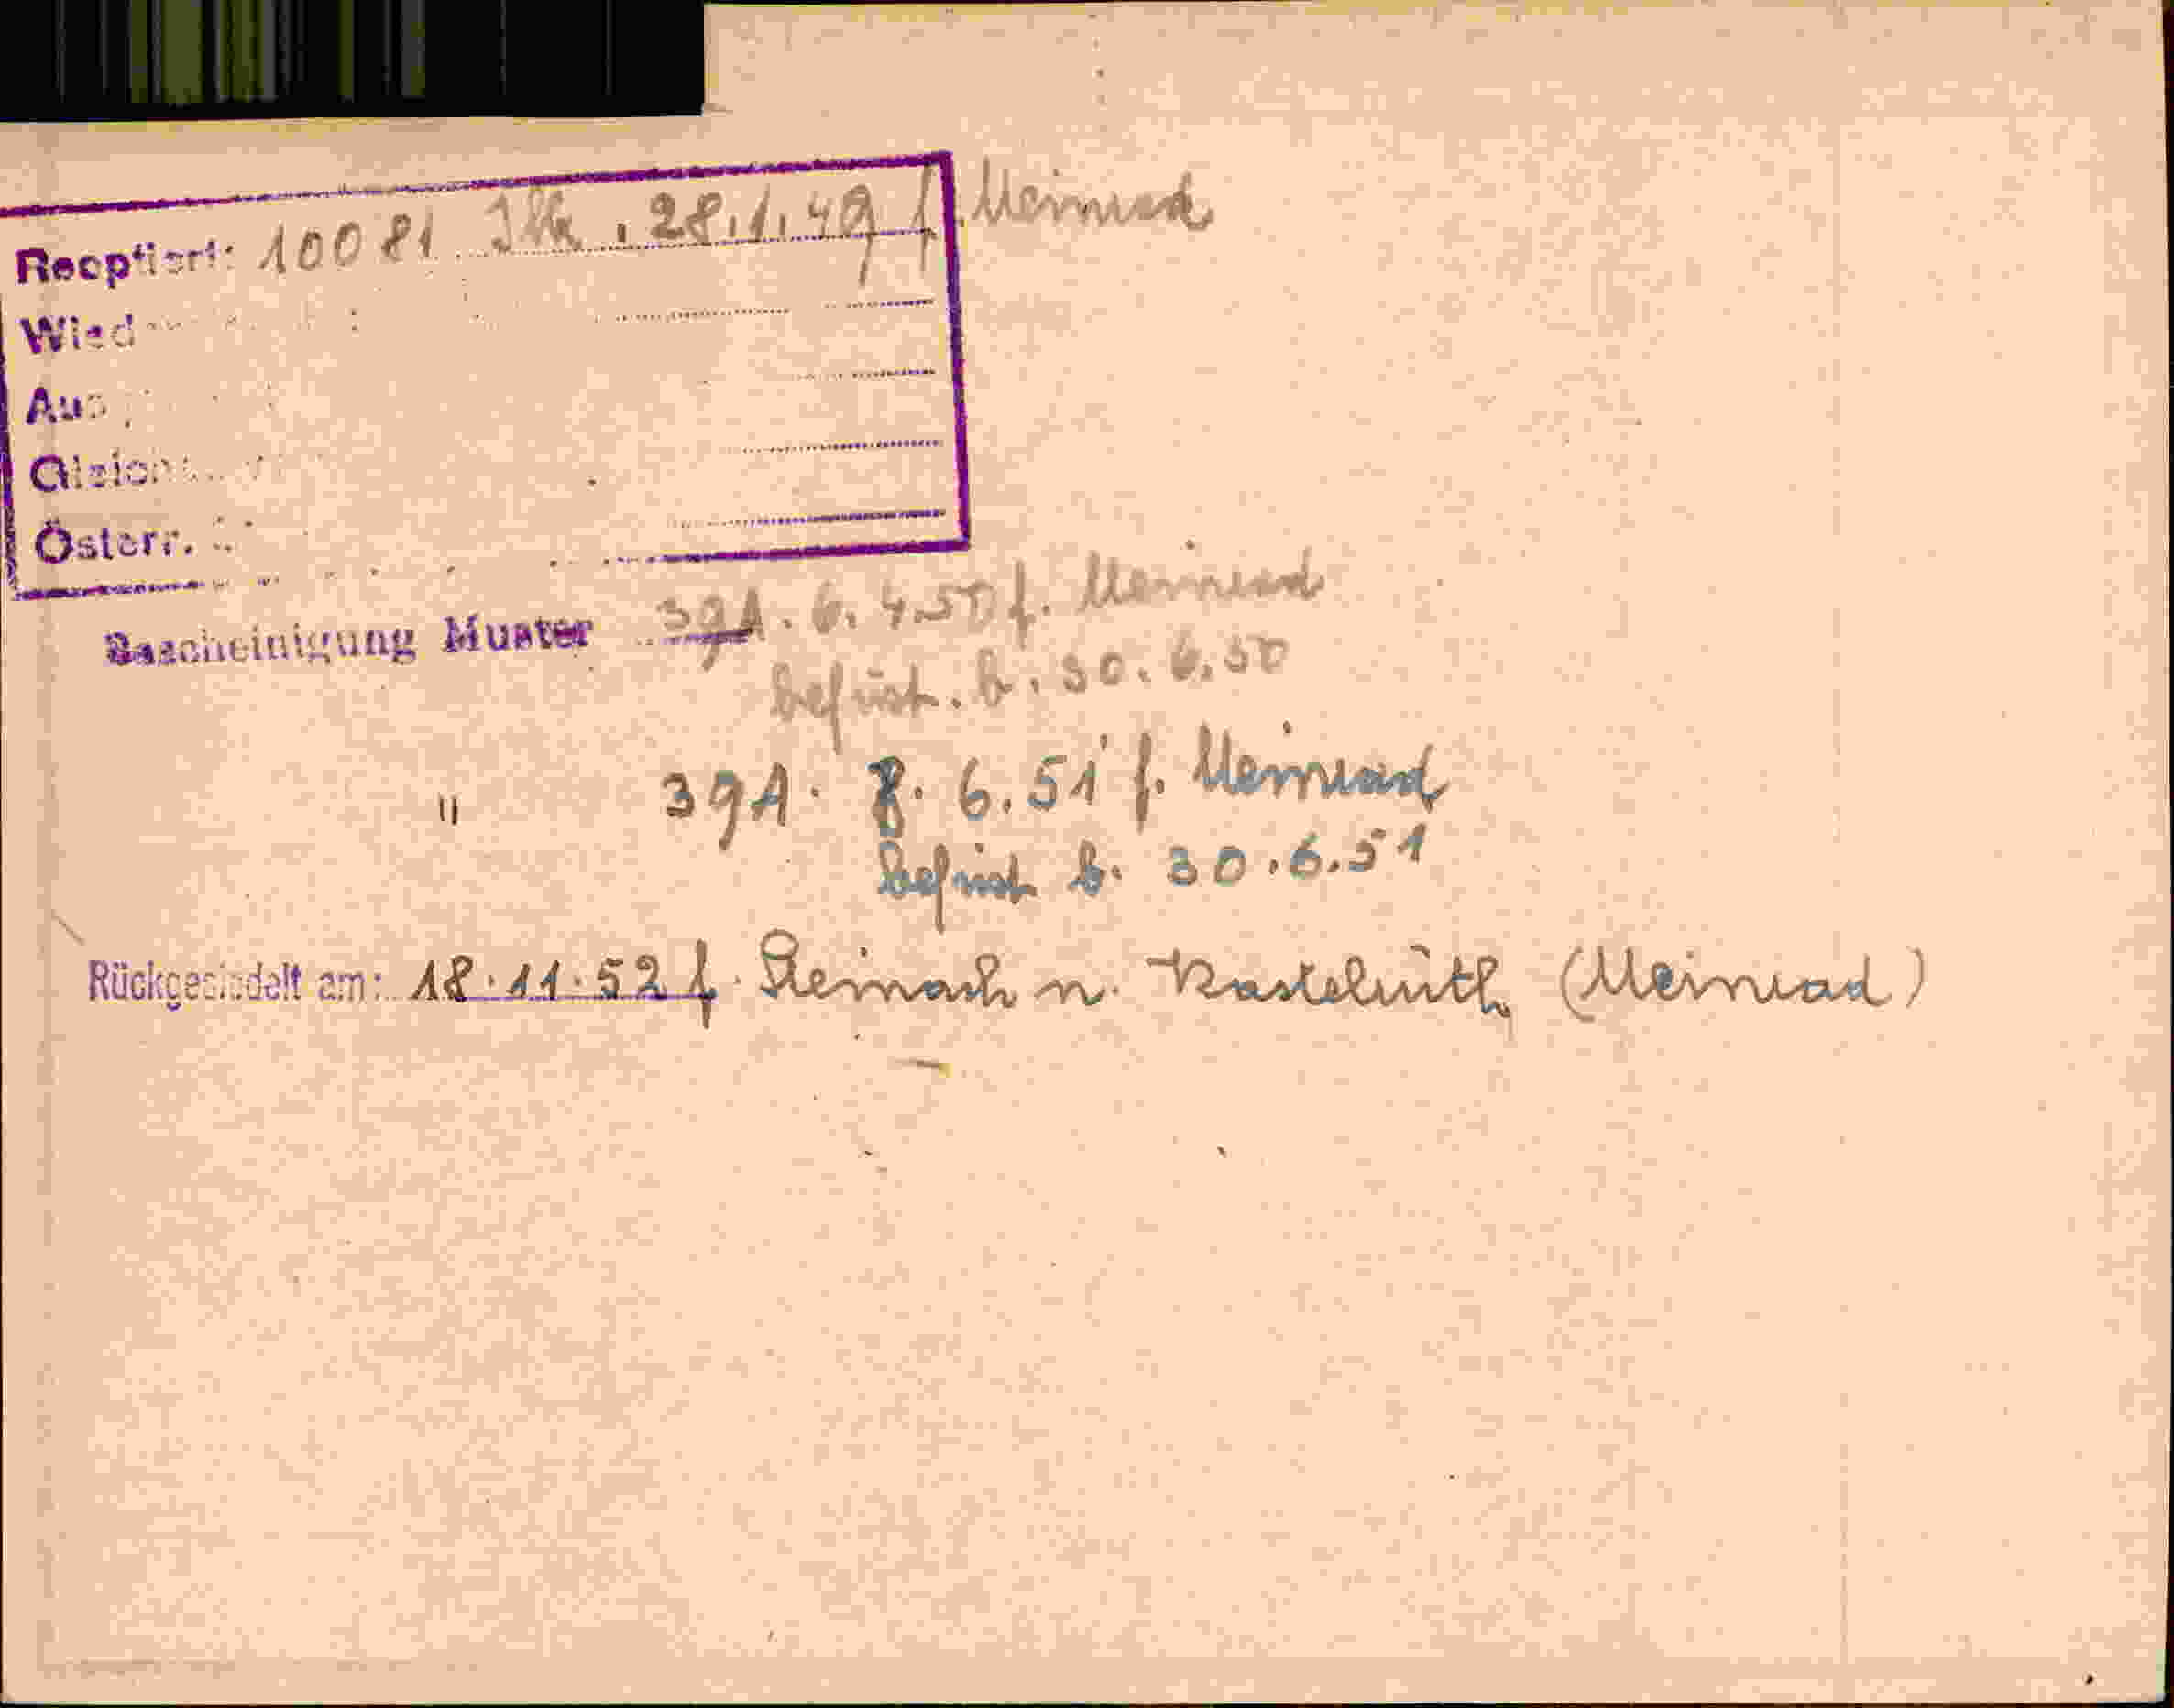 Reoptiert: 10081 Jbk. 28.1.49 f. Meinrad
Wied
Aus
Gleich
Österr.
Bescheinigung Muster 39A. 6.4.50 f. Meinrad
befrist. b. 30.6.50
" 39A. 8. 6.51 f. Meinrad
befrist b. 30.6.51
Rückgesiedelt am: 18.11.52 f. Steinach n. Kastelruth (Meinrad)